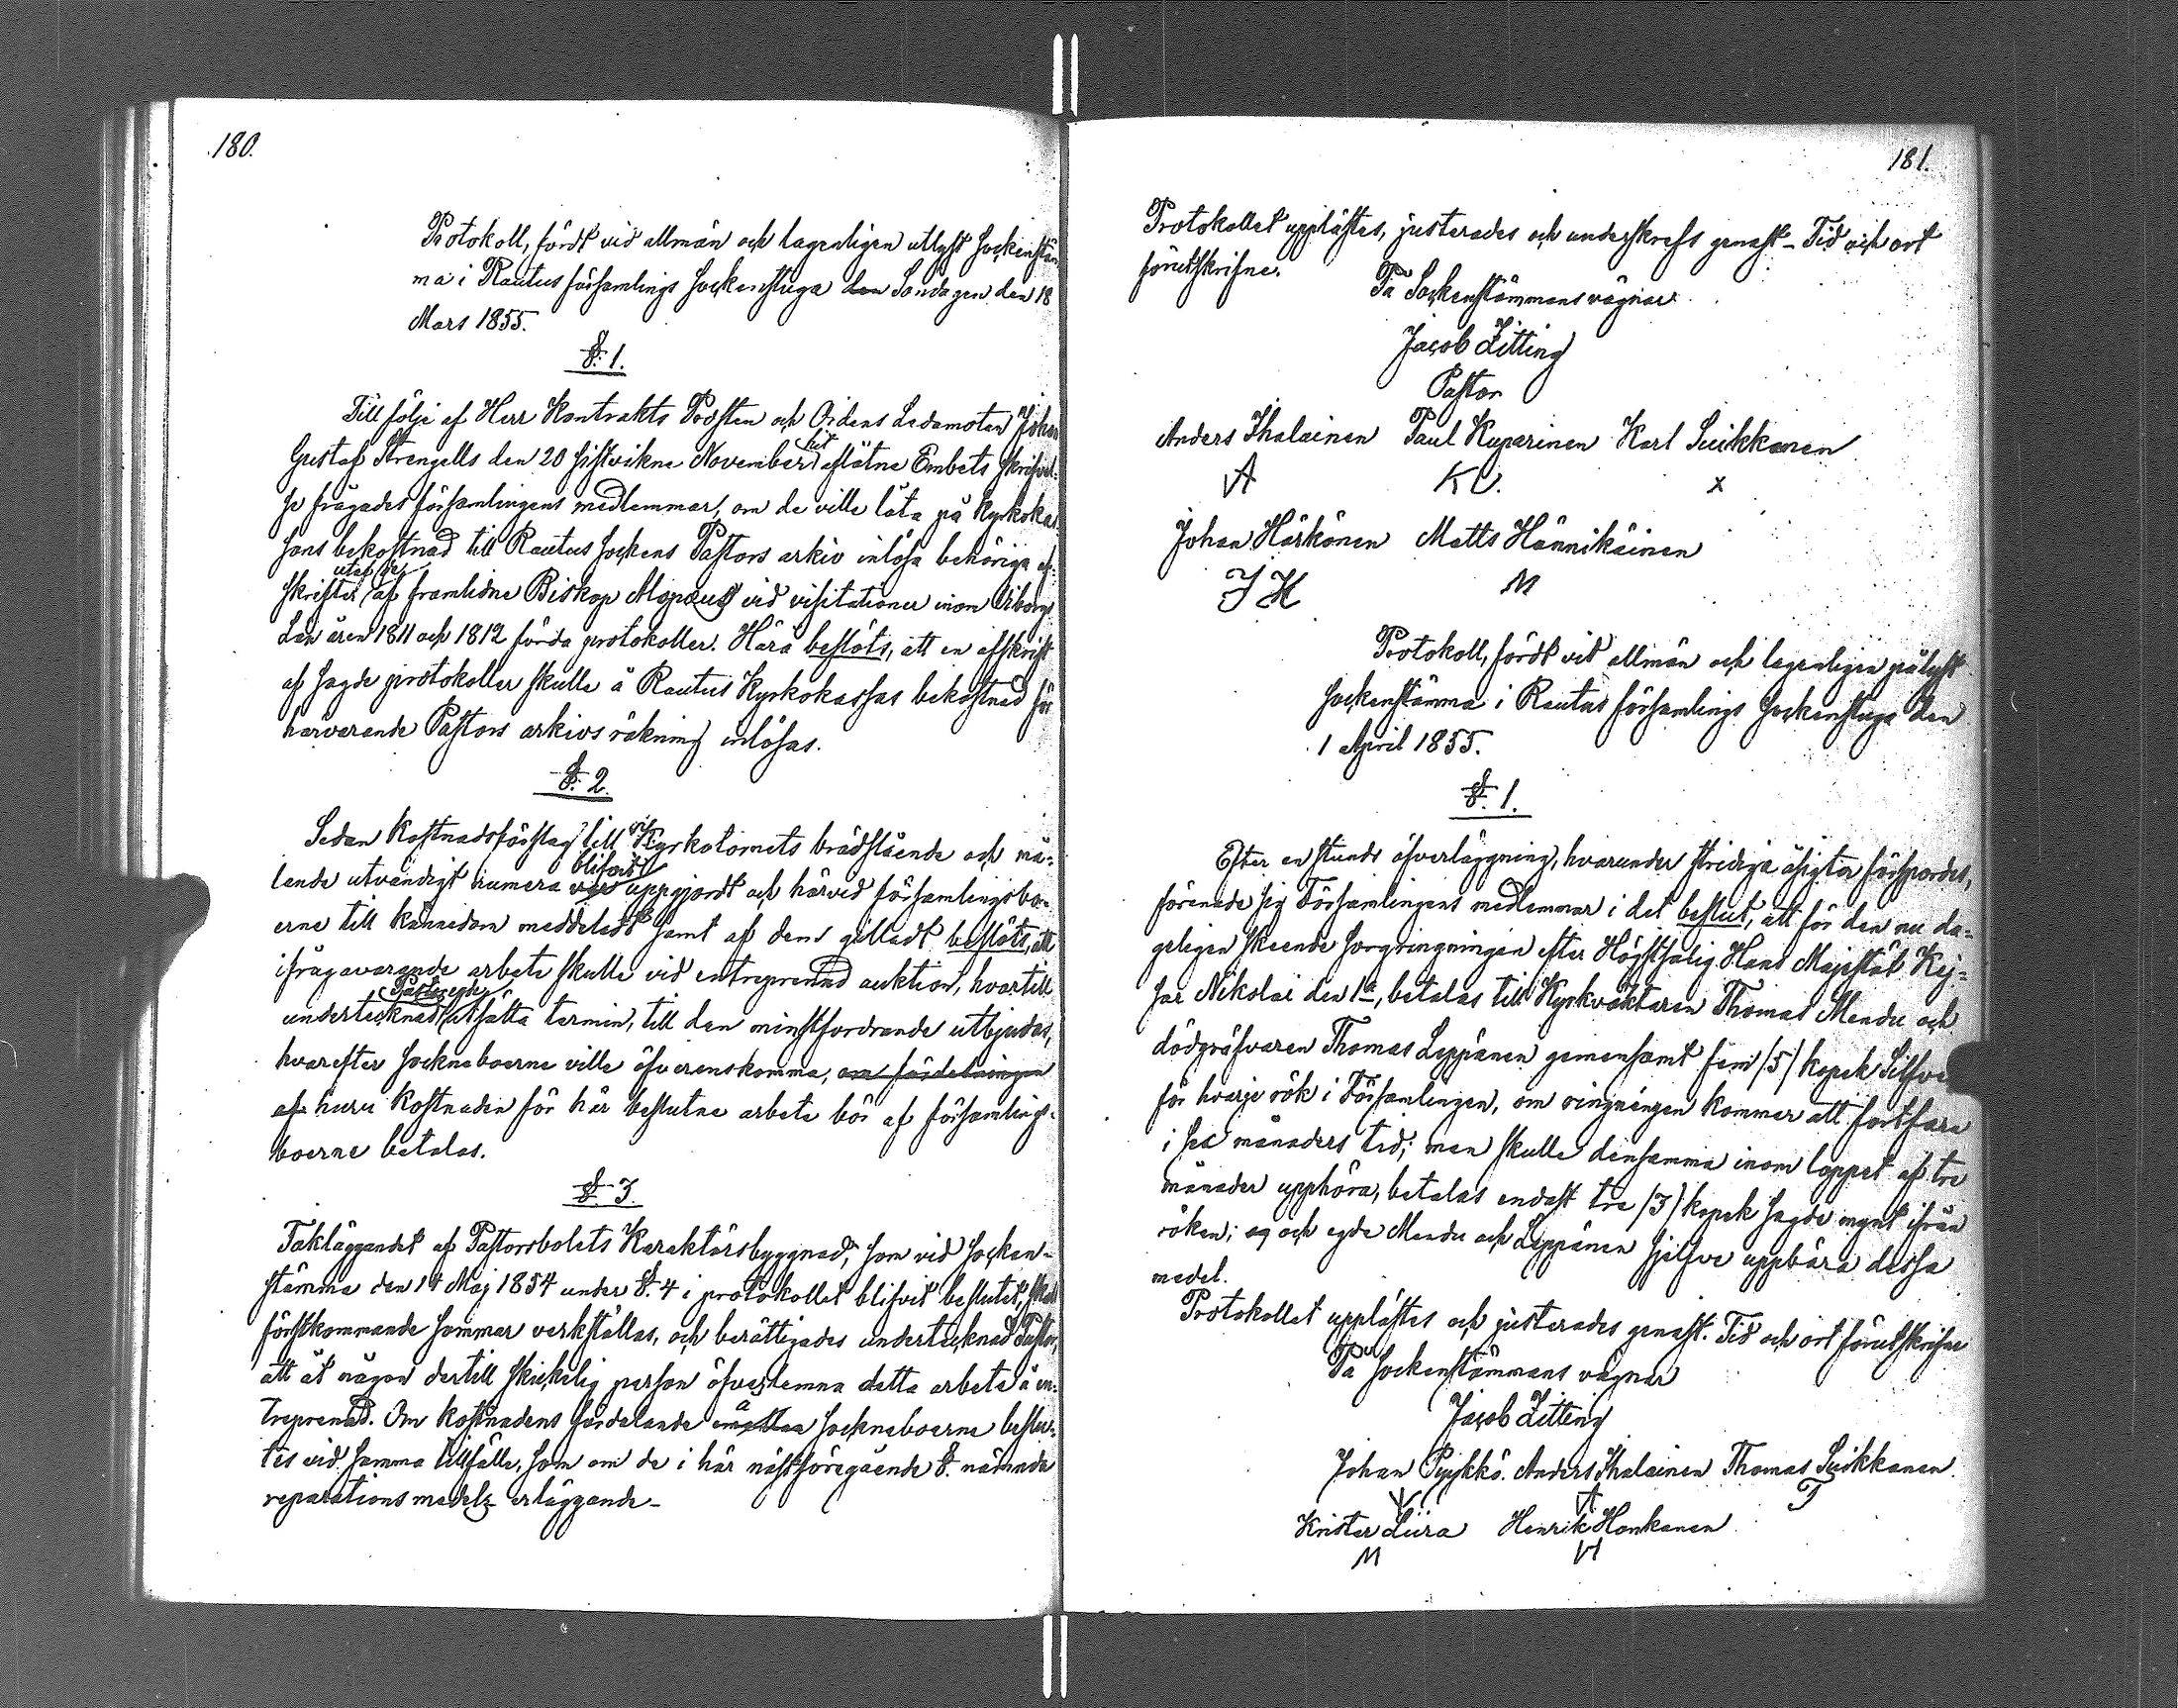 180.
Protokoll, fördt vid allmän och lagenligen utlyst Sockenstäm-
ma i Rautus församlings Sockenstuga den Söndagen den 18
Mars 1855.
§. 1.
Till följe af Herr Kontrakts Prosten och Ordens Ledamoten Johan
Gustaf Strengells den 20 sistvikne November hit aflåtne Embets skrifvel-
se frågades församlingens medlemmar, om de ville låta på Kyrkokas-
sans bekostnad till Rautus sockens Pastors arkiv inlösa behöriga af-
skrifter utaf de af framlidne Biskop Molnæus vid visitationer inom Wiborgs
Län åren 1811 och 1812 förda protokoller. Härå beslöts, att en afskrift
af sagde protokoller skulle å Rautus Kyrkokassas bekostnad för
härvarande Pastors arkivs räkning inlösas.
§. 2.
Sedan Kostnadsförslag till Kyrkotornets brädslående och må-
lande utvändigt numera vore blifvit uppgjordt och härvid församlingsbo-
erne till kännedom meddeladt samt af dem gilladt beslöts, att
ifrågavarande arbete skulle vid entreprenad auktion, hvartill
undertecknad Pastor egde utsätta termin, till den minstfordrande utbjudas,
hvarefter sockneboerne ville öfverenskomma, om fördelningen
af huru Kostnaden för här beslutne arbete bör af församlings-
boerne betalas.
§. 3.
Takläggandet af Pastorsbolets Karaktärsbyggnad, som vid Socken-
stämma den 14 Maj 1854 under §. 4 i protokollet blifvit beslutet, skall
förstkommande sommar verkställas, och berättigades undertecknad Pastor,
att åt någon dertill skickelig person öfverlemna detta arbete å en-
treprenad. Om kostnadens fördelande å sockneboerne beslu-
tes vid samma tillfälle, som om de i här nästföregående §. nämnde
reparationsmedels erläggande_
181.
Protokollet upplästes, justerades och underskrefs genast_ Tid och ort
förutskrifne.
På Sockenstämmans vägnar
Jacob Zitting
Pastor
Anders Ihalainen Paul Kuparinen Karl Suikkanen
A K x
Johan Härkönen Matts Hännikäinen
JH M
Protokoll, fördt vid allmän och lagenligen pålyst
Sockenstämma i Rautus församlings Sockenstuga den
1 April 1855.
§. 1.
Efter en stunds öfverläggning, hvarunder stridiga åsigter förspordes,
förenade sig Församlingens medlemmar i det beslut, att för den nu da-
geligen skeende sorgringningen efter Högstsalig Hans Majestät Kej-
sar Nikolai den 1a, betalas till Kyrkväktaren Thomas Mendu och
dödgräfvaren Thomas Leppänen gemensamt fem (5) kopek Silfver
för hvarje rök i Församlingen, om ringningen kommer att fortfara
i sex månaders tid; men skulle densamma inom loppet af tre
månader upphöra, betalas endast tre (3) kopek sagde mynt ifrån
röken; eg och egde Mendu och Leppänen sjelfve uppbära dessa
medel.
Protokollet upplästes och justerades genast. Tid och ort förutskrifne
På Sockenstämmans vägnar
Jacob Zitting
Johan Pyykkö. Anders Ihalainen Thomas Suikkanen.
A T
Krister Liira Henrik Honkanen
M H